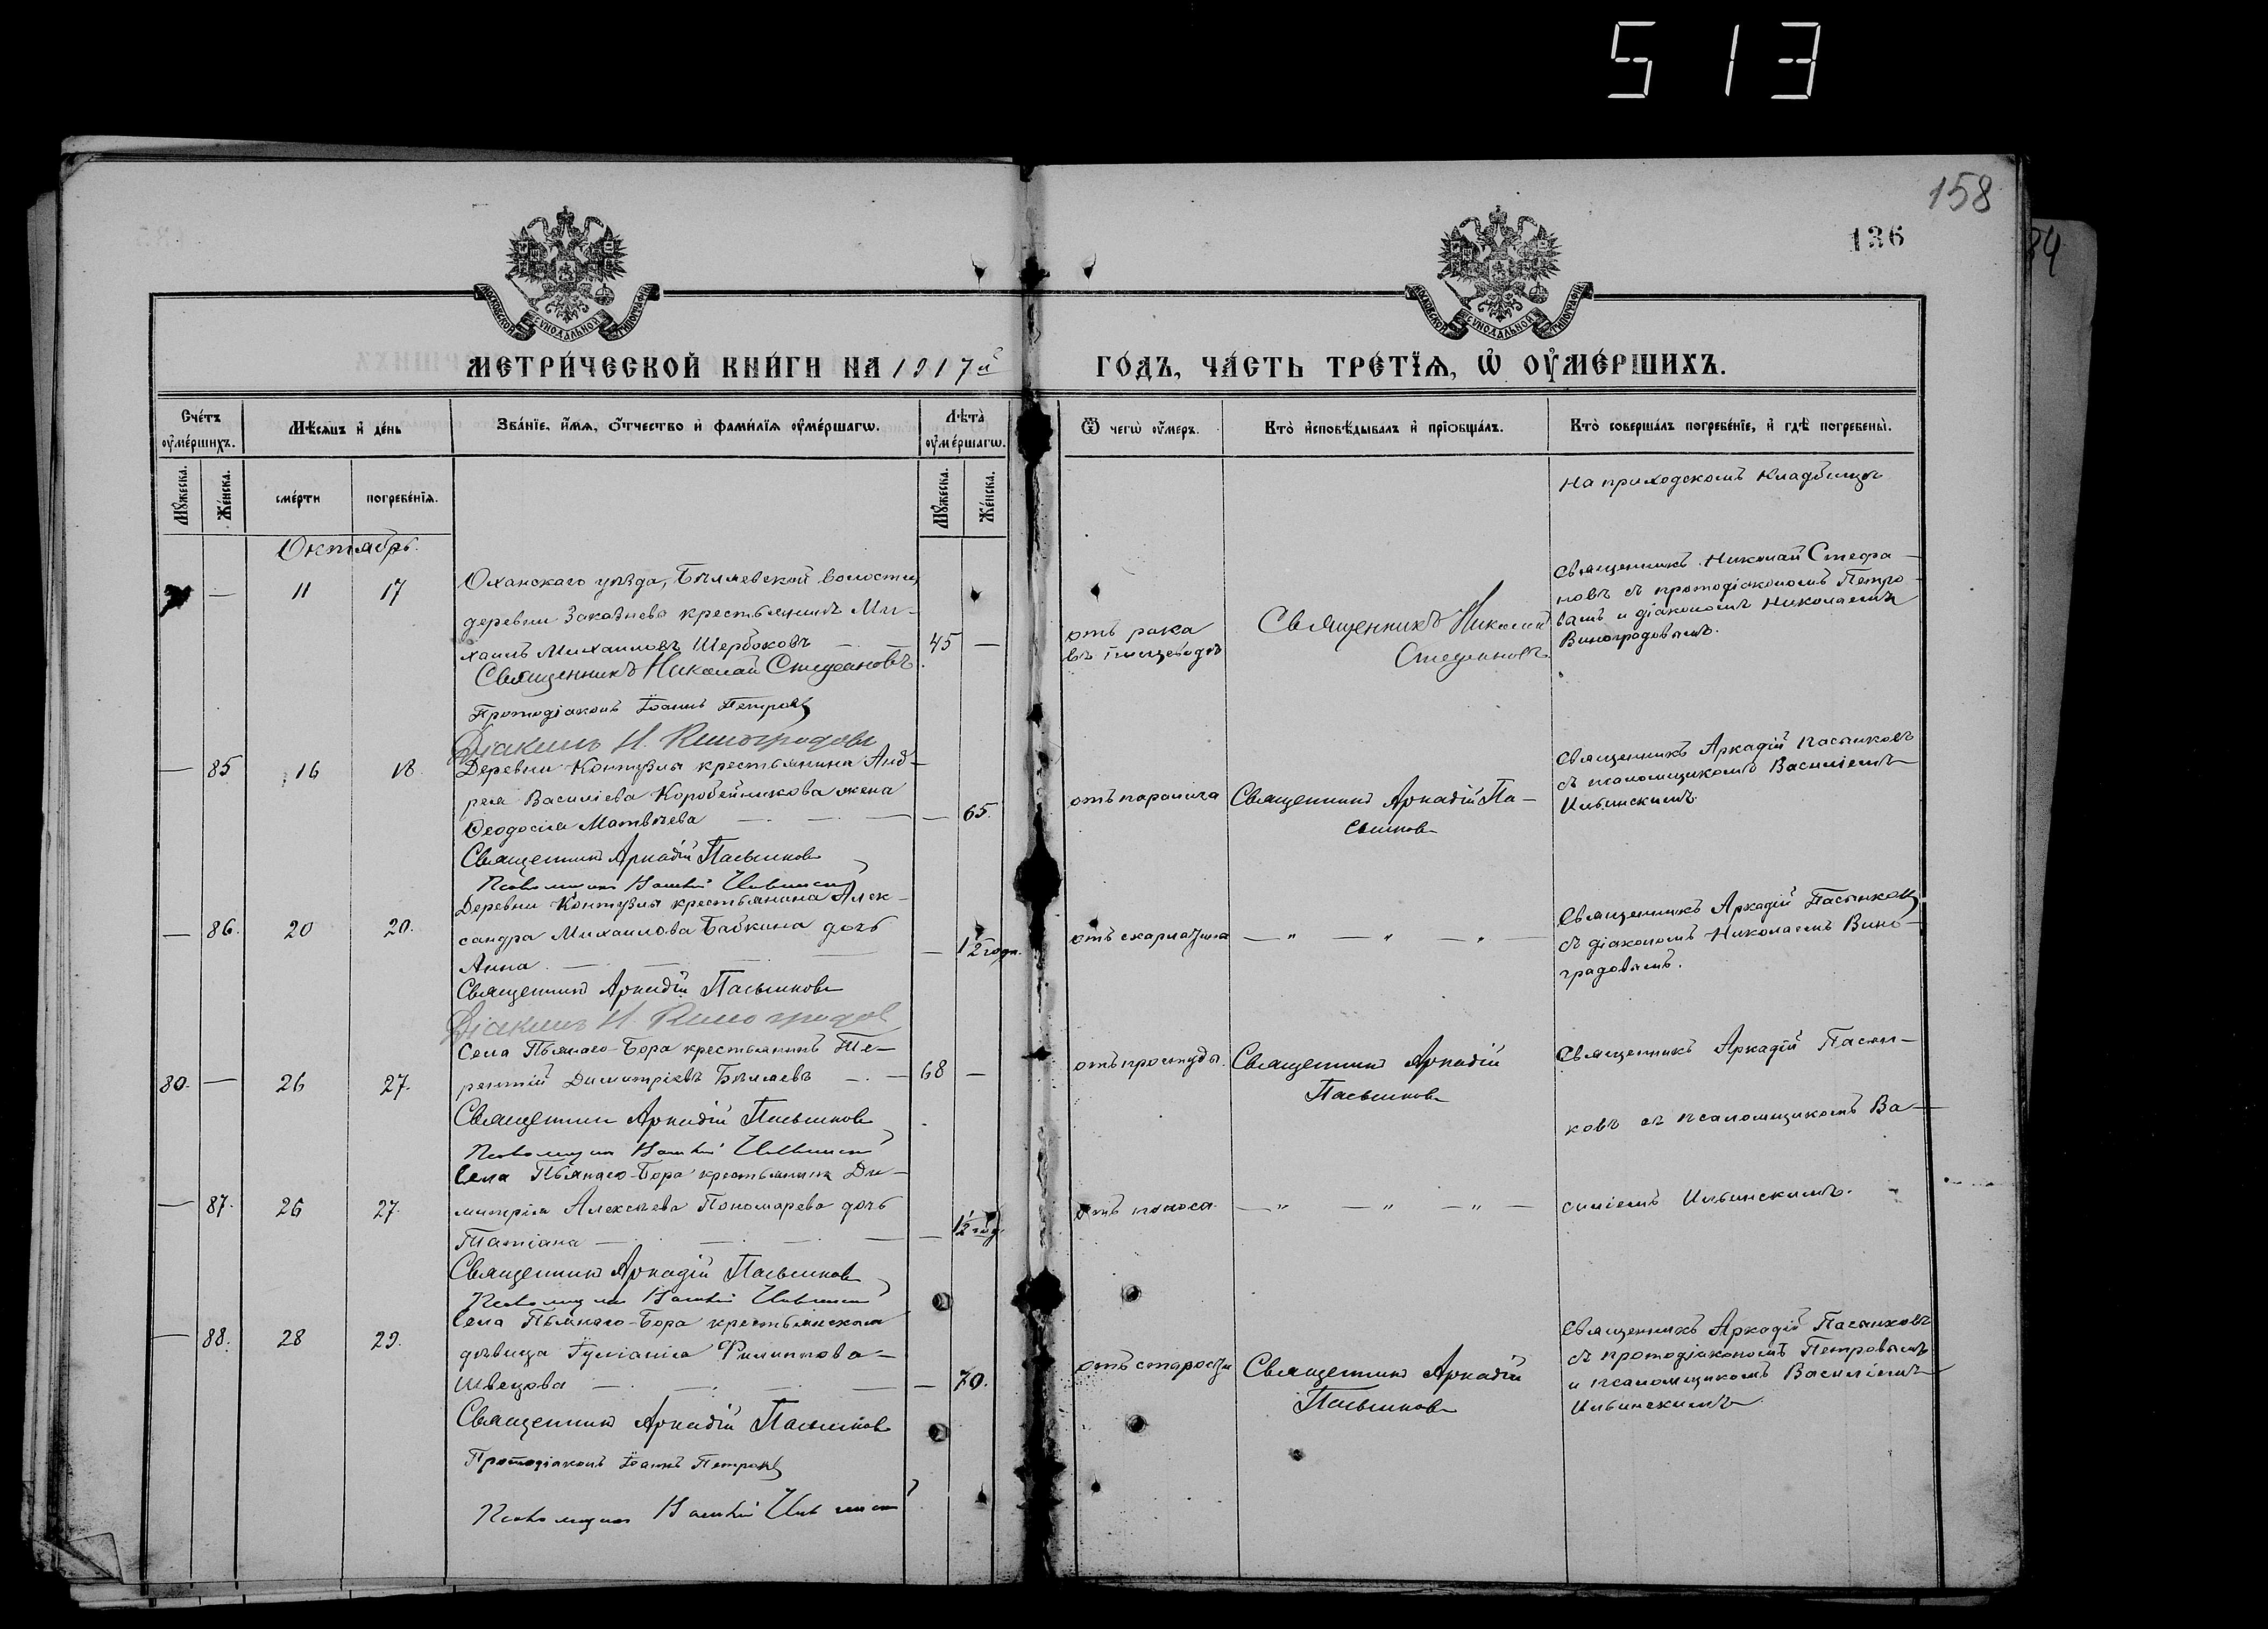 513
158
136
84
МОСКОВСКОЙ СѴНОДАЛЬНОЙ ТИПОГРАФІИ
МОСКОВСКОЙ СѴНОДАЛЬНОЙ ТИПОГРАФІИ
МЕТРИ́ЧЕСКОЙ КНИ́ГИ НА 1917й ГО́ДЪ, ЧА́СТЬ ТРЕ́ТЇѦ, Ѡ҆ ОУ҆МЕ́РШИХЪ.
Сче́тъ оу҆ме́ршихъ.
Мѣ́сѧцъ и҆ де́нь
Зва́нїе, и҆́мѧ, ѻ҆́тчество и҆ фами́лїѧ оу҆ме́ршагѡ.
Лѣ́та оу҆ме́ршагѡ.
Ѿ чегѡ̀ оу҆́меръ.
Кто̀ и҆сповѣ́дывалъ и҆ прїѻбща́лъ.
Кто̀ соверша́лъ погребе́нїе, и҆ гдѣ̀ погребены̀.
Мꙋ́жеска.
Же́нска.
сме́рти
погребе́нїѧ.
Мꙋ́жеска.
Же́нска.
На приходскомъ кладбищѣ
Октябрь.
— 11 17
Оханскаго уѣзда, Бѣляевской волости,
деревни крестьянинъ Ми-
хаилъ Михаиловъ Щербаковъ — 45 —
Священникъ Николай Стефановъ.
Протодіаконъ Іоаннъ Петровъ
Діаконъ Н. Виноградовъ
отъ рака
въ пищеводѣ
Священникъ Николай
Стефановъ.
Священникъ Николай Стефа-
новъ съ протодіакономъ Петро-
вымъ и діакономъ Николаемъ
Виноградовымъ.
— 85 16 18.
Деревни Контузлы крестьянина Анд-
рея Василіева Коробейникова жена
Ѳеодосія Матвѣева — — — — 65.
Священникъ Аркадій Пасынковъ
Псаломщикъ Василій Ильинскій
отъ паралича
Священникъ Аркадій Па-
сынковъ
Священникъ Аркадій Пасынковъ
съ псаломщикомъ Василіемъ
Ильинскимъ.
— 86. 20 20.
Деревни Контузлы крестьянина Алек-
сандра Михаилова Бабкина дочь
Анна. — — — — — 1/2 года.
Священникъ Аркадій Пасынковъ
Діаконъ Н. Виноградовъ
отъ скарлатины
— „ — „ — „ —
Священникъ Аркадій Пасынковъ
съ діакономъ Николаемъ Вино-
градовымъ.
80. — 26 27.
Села Пьянаго-Бора крестьянинъ Те-
рентій Димитріевъ Бѣляевъ — — 68 —
Священникъ Аркадій Пасынковъ
Псаломщикъ Василій Ильинскій
отъ простуды.
Священникъ Аркадій
Пасынковъ
Священникъ Аркадій Пасын-
ковъ съ псаломщикомъ Ва-
силіемъ Ильинскимъ.
— 87. 26 27.
Села Пьянаго-Бора крестьянина Ди-
митрія Алексѣева Пономарева дочь
Татіана — — — — — 1/2 год.
Священникъ Аркадій Пасынковъ
Псаломщикъ Василій Ильинскій
отъ поноса.
— „ — „ — „ —
— 88. 28 29.
Села Пьянаго-Бора крестьянская
дѣвица Іуліанія Филиппова
Швецова — — — — — 70.
Священникъ Аркадій Пасынковъ
Протодіаконъ Іоаннъ Петровъ
Псаломщикъ Василій Ильинскій
отъ старости
Священникъ Аркадій
Пасынковъ
Священникъ Аркадій Пасынковъ
съ протодіакономъ Петровымъ
и псаломщикомъ Василіемъ
Ильинскимъ.